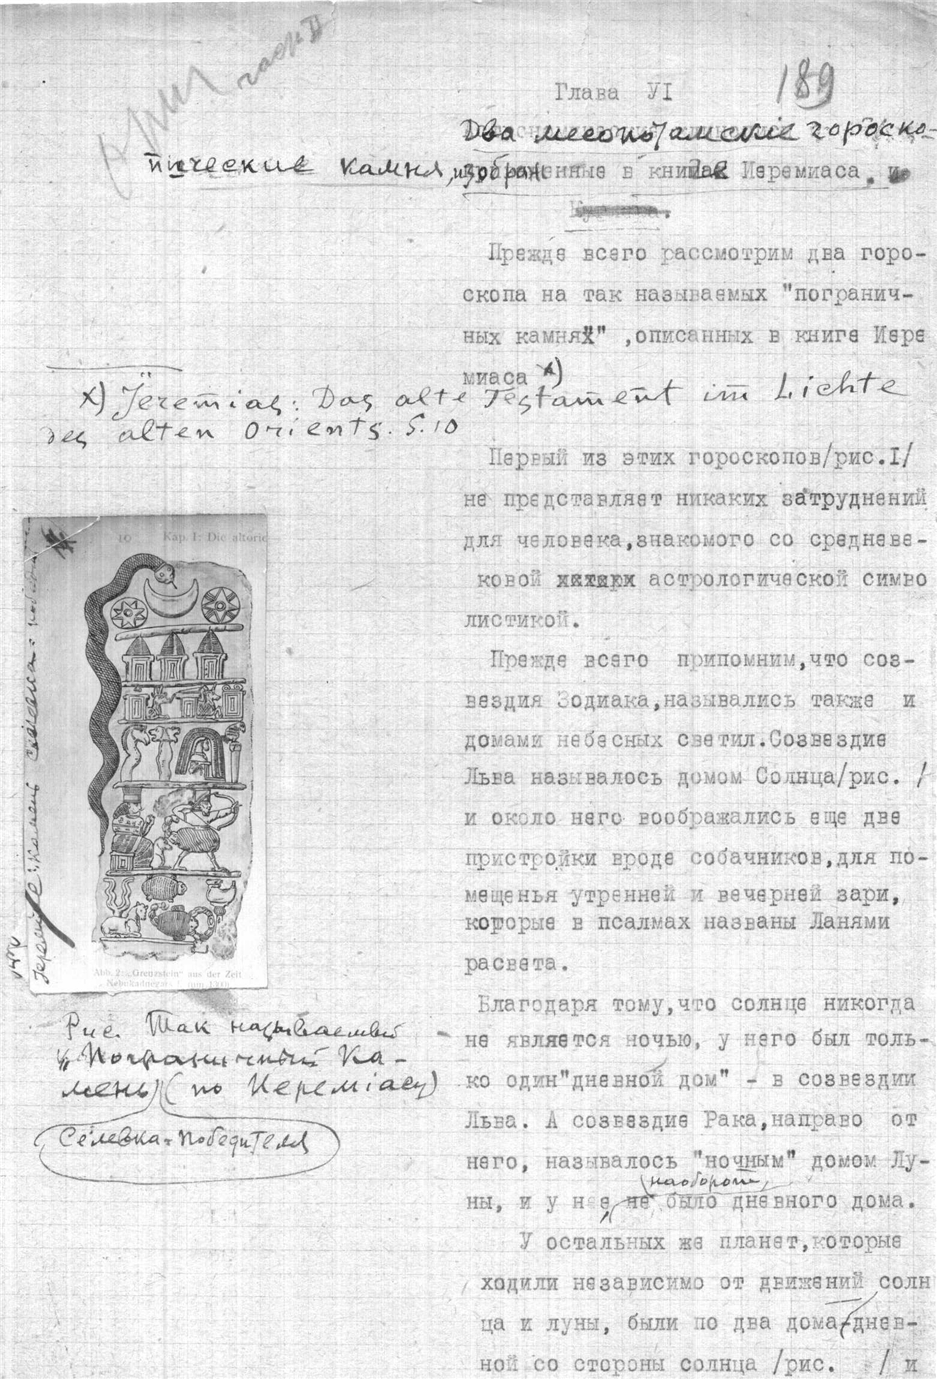 част II
189
Глава VI
Два месопотамские гороско-
пические камня, изображенные в книге Иеремиаса.
Прежде всего рассмотрим два горо-
скопа на так называемых "погранич-
ных камнях" ,описанных в книге Иере
миаса x)
x) Jeremias: Das alte Testament im Lichte
des alten Orients. S. 10
Первый из этих гороскопов/рис.I/
не представляет никаких затруднений
для человека,знакомого со средневе-
ковой астрологической симво
листикой.
Прежде всего припомним,что соз-
вездия Зодиака,назывались также и
домами небесных светил.Созвездие
Льва называлось домом Солнца/рис. /
и около него воображались еще две
пристройки вроде собачников,для по-
мещенья утренней и вечерней зари,
которые в псалмах названы Ланями
расвета.
Благодаря тому,что солнце никогда
не является ночью, у него был толь-
ко один"дневной дом" - в созвездии
Льва. А созвездие Рака,направо от
него, называлось "ночным" домом Лу-
наоборот,
ны, и у нее, не было дневного дома.
У остальных же планет,которые
ходили независимо от движений солн
ца и луны, были по два дома-днев-
ной со стороны солнца /рис. / и
10 Kap. I: Die altorie
Abb. 2: „Grenzstein" aus der Zeit
Рис. Так называемый
"Пограничный Ка-
мень" (по Иереміасу)
Селевка-победителя